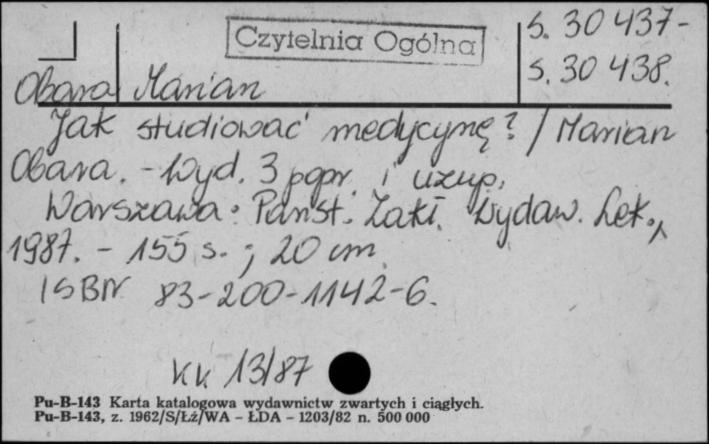 Czytelnia Ogólna
S. 30 437-
S. 30 438.
Obara Marian
Jak studiować medycynę? / Marian
Obara. - Wyd. 3 popr. i uzup.
Warszawa: Państ. Zakł. Wydaw. Lek.,
1987. - 155 s. ; 20 cm.
ISBN 83-200-1142-6.
KK 13/87
Pu-B-143 Karta katalogowa wydawnictw zwartych i ciągłych.
Pu-B-143, z. 1962/S/Łź/WA - ŁDA - 1203/82 n. 500 000